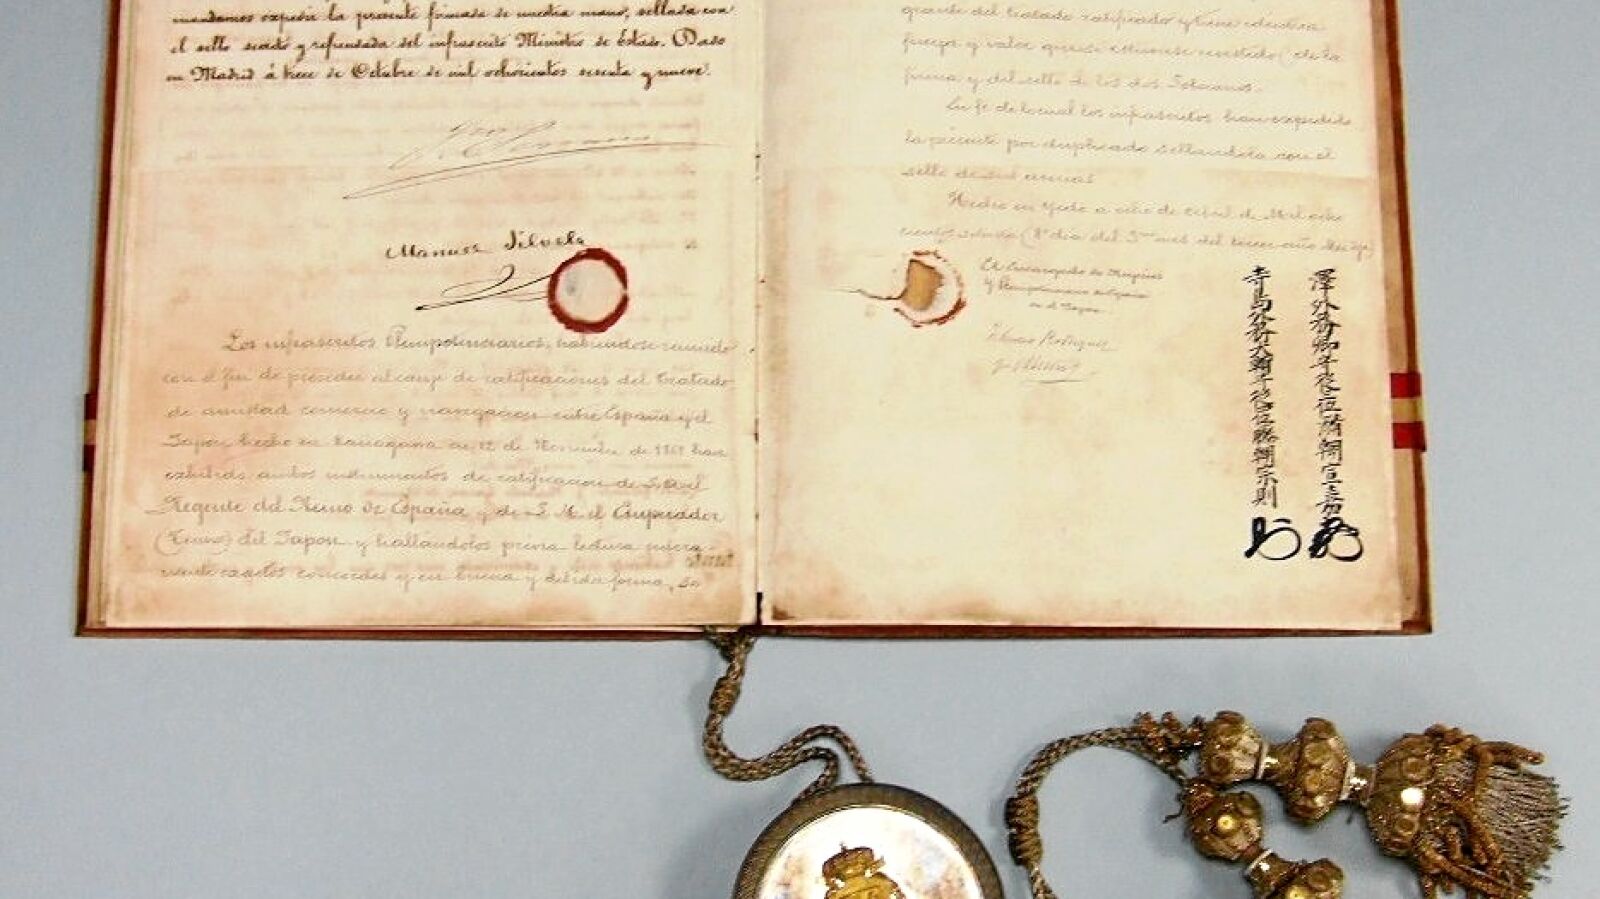 mandamos expedir la presente firmada de nuestra mano, sellada con
el sello secreto y refrendada del infrascrito Ministro de Estado. Dado
en Madrid á trece de Octubre de mil ochocientos sesenta y nueve.
Manuel Silvela
Los infrascritos Plenipotenciarios, habiendose reunido
con el fin de proceder al canje de ratificaciones del tratado
de amistad comercio y navegacion entre España y el
Japon hecho en Kanagawa en 12 de Noviembre de 1868 han
exhibido ambos instrumentos de ratificacion de S. A. el
Regente del Reino de España y de S. M. el Emperador
(Tenno) del Japon y hallandolos previa lectura
exactos concordes y en buena y debida forma, se
del tratado ratificado y tiene identica
fuerza y valor que si estuviese revestido de la
firma y del sello de los dos Soberanos.
En fe de lo cual los infrascritos han expedido
la presente por duplicado sellandola con el
sello de sus armas
Hecho en Yedo a ocho de Abril de Mil ocho
cientos setenta (8º dia del 3er mes del tercer año Meidji)
El Encargado de Negocios
y Plenipotenciario de España
en el Japon
Tiburcio Rodriguez
y Muñoz
澤外務卿平從位清朝臣宣嘉
寺島外務大輔平從四位藤朝臣宗則